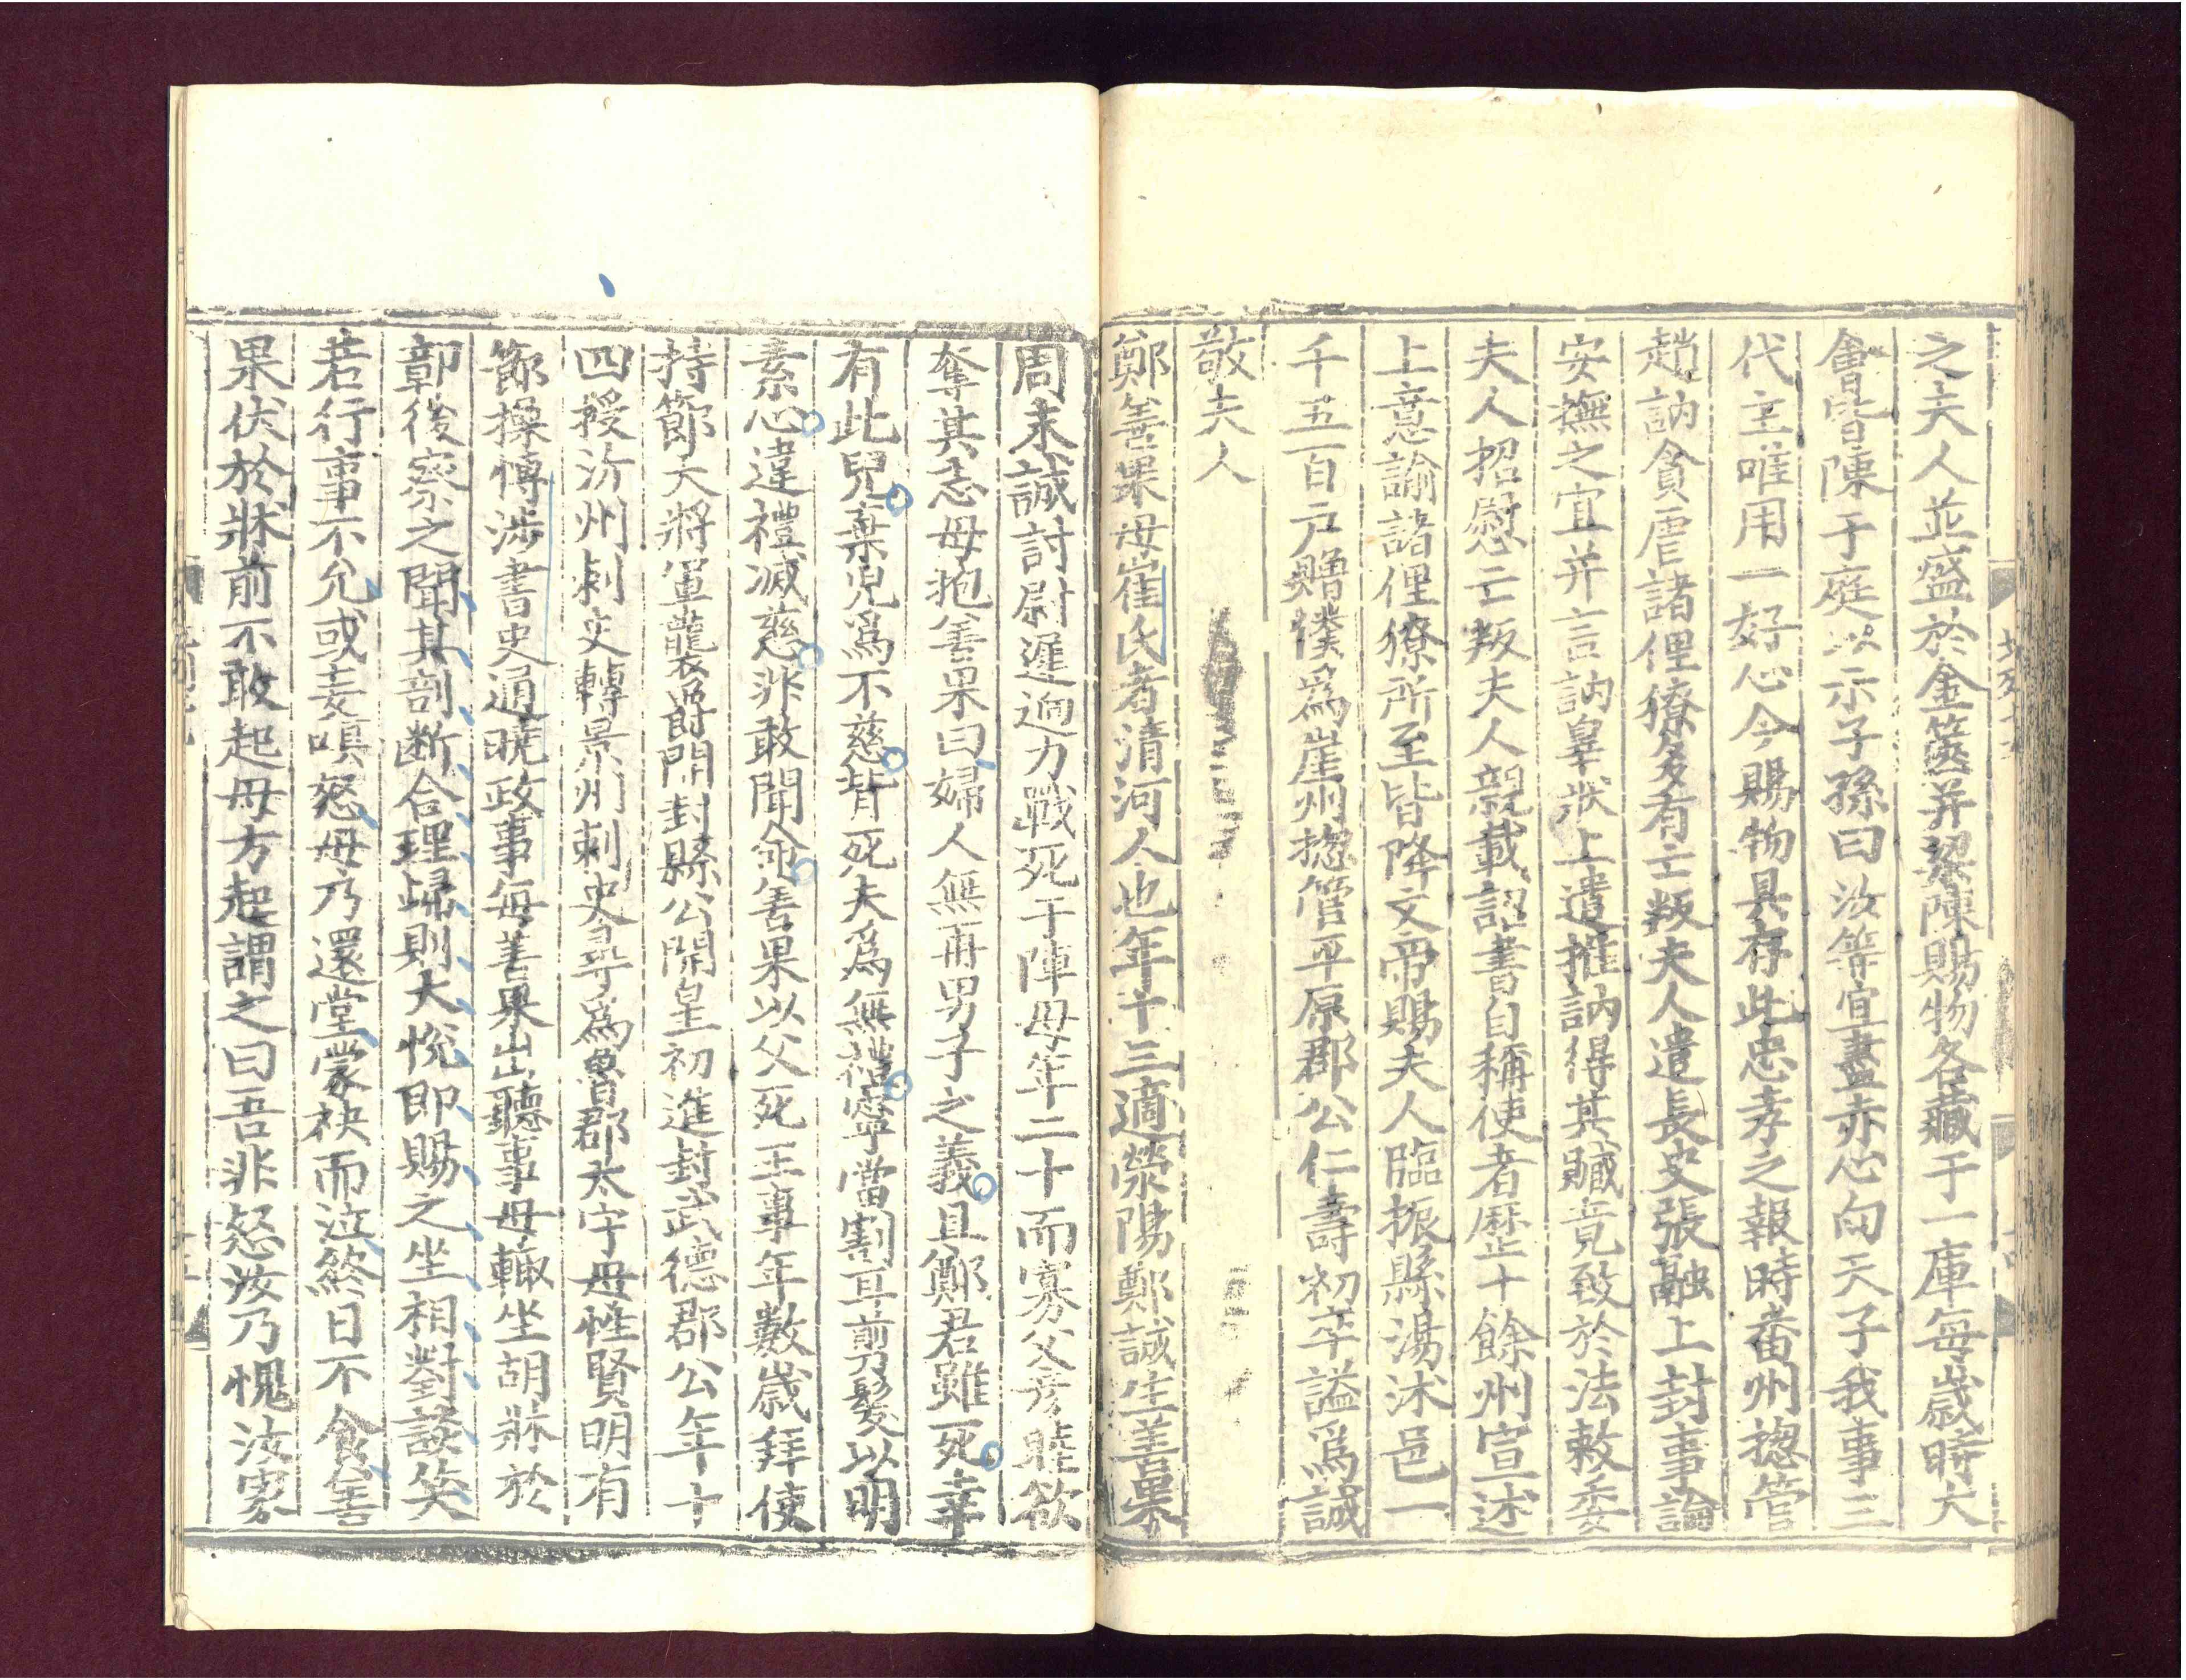 之夫人並盛於金篋并梁陳賜物各藏于一庫每歲時大
會皆陳于庭以示子孫曰汝等宜盡赤心向天子我事三
代主唯用一好心今賜物具存此忠孝之報時番州揔管
趙訥貪虐諸俚獠多有亡叛夫人遣長史張融上封事論
安撫之宜并言訥辠狀上遣推訥得其贓竟致於法敕委
夫人招慰亡叛夫人親載詔書自稱使者歷十餘州宣述
上意諭諸俚獠所至皆降文帝賜夫人臨振縣湯沐邑一
千五百戶贈僕爲崖州揔管平原郡公仁壽初卒謚爲誠
敬夫人
鄭善果母崔氏者清河人也年十三適滎陽鄭誠生善果
周末誠討尉遲迥力戰死于陣母年二十而寡父彥睦欲
奪其志母抱善果曰婦人無再男子之義且鄭君雖死幸
有此兒棄兒爲不慈背死夫爲無禮寧當割耳剪髮以明
素心違禮滅慈非敢聞命善果以父死王事年數歲拜使
持節大將軍襲爵開封縣公開皇初進封武德郡公年十
四授沂州刺史轉景州刺史尋爲魯郡太守母性賢明有
節操博涉書史通曉政事每善果出聽事母輙坐胡牀於
鄣後察之聞其剖斷合理歸則大悅即賜之坐相對談笑
若行事不允或妄嗔怒母乃還堂蒙袂而泣終日不食善
果伏於牀前不敢起母方起謂之曰吾非怒汝乃愧汝家